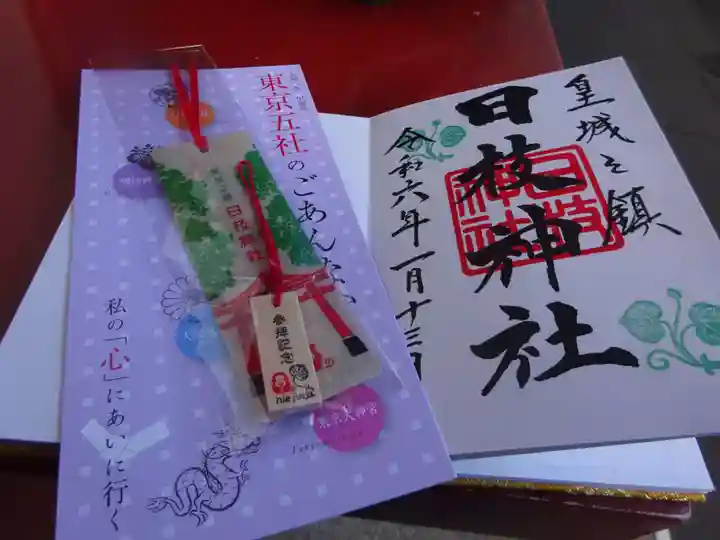 東京五社のごあんない
私の「心」にあいに行く
東京大神宮
日枝神社
参拝記念
皇城之鎮
日枝神社
令和六年一月十三日